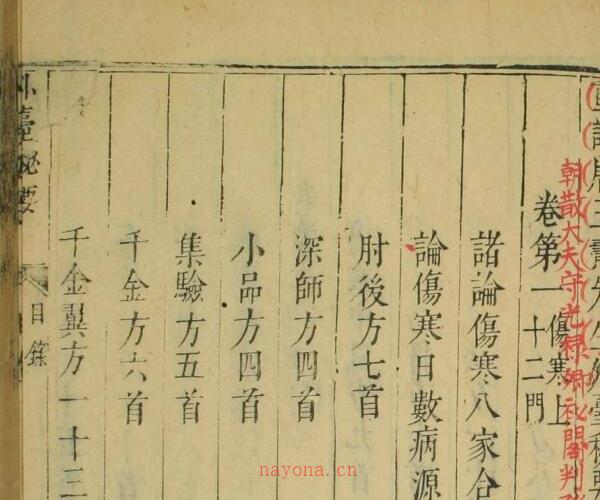 訂唐王燾先生外臺秘要
朝散大夫守光禄卿秘閣判
卷第一 傷寒上
十二門
諸論傷寒八家合
論傷寒日數病源
肘後方七首
深師方四首
小品方四首
集驗方五首
千金方六首
千金翼方一十三
外臺秘要 目錄
nayona.cn